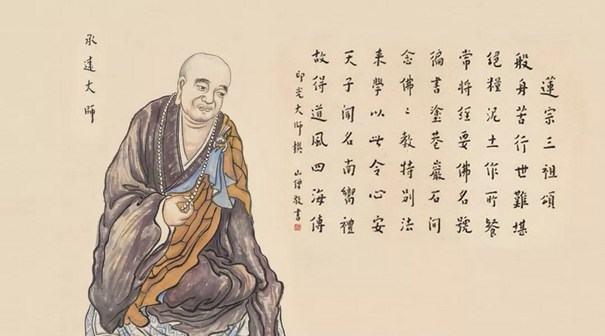 蓮宗三祖頌
般舟苦行世難堪
絕糧泥土作所餐
常將經要佛名號
徧書塗巷巖石間
念佛〻教特別法
來學以此令心安
天子聞名南嚮禮
故得道風四海傳
印光大師撰 山僧敬書
承遠大師